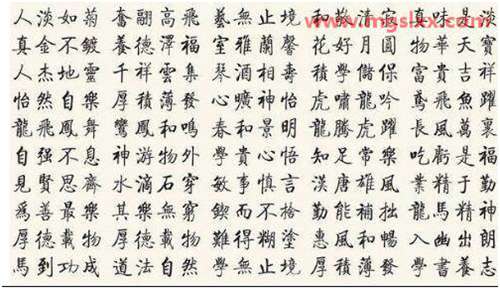 人淡如菊 奮翮高飛 藝無止境 和清 味是淡
真金不鍍 養德澤福 室雅蘭馨 花好月圓 物華天寶
人杰地靈 千祥雲集 琴酒相壽 學儲 富貴吉祥
怡然自樂 厚積薄發 心曠神怡 虎嘯龍吟 鳶飛魚躍
龍飛鳳舞 鸞鳳和鳴 春和景明 龍騰虎躍 長風萬裏
自强不息 神游物外 學貴心悟 知足常樂 吃虧是福
見賢思齊 水滴石穿 敏事慎言 漢唐雄風 業精于勤
爲善最樂 其樂無窮 鍥而不捨 勤能補拙 龍馬精神
厚德載物 厚德載物 難得糊塗 惠風和暢 入幽出朗
馬到功成 道法自然 學無止境 厚積薄發 學書養志
www.mgslxx.com